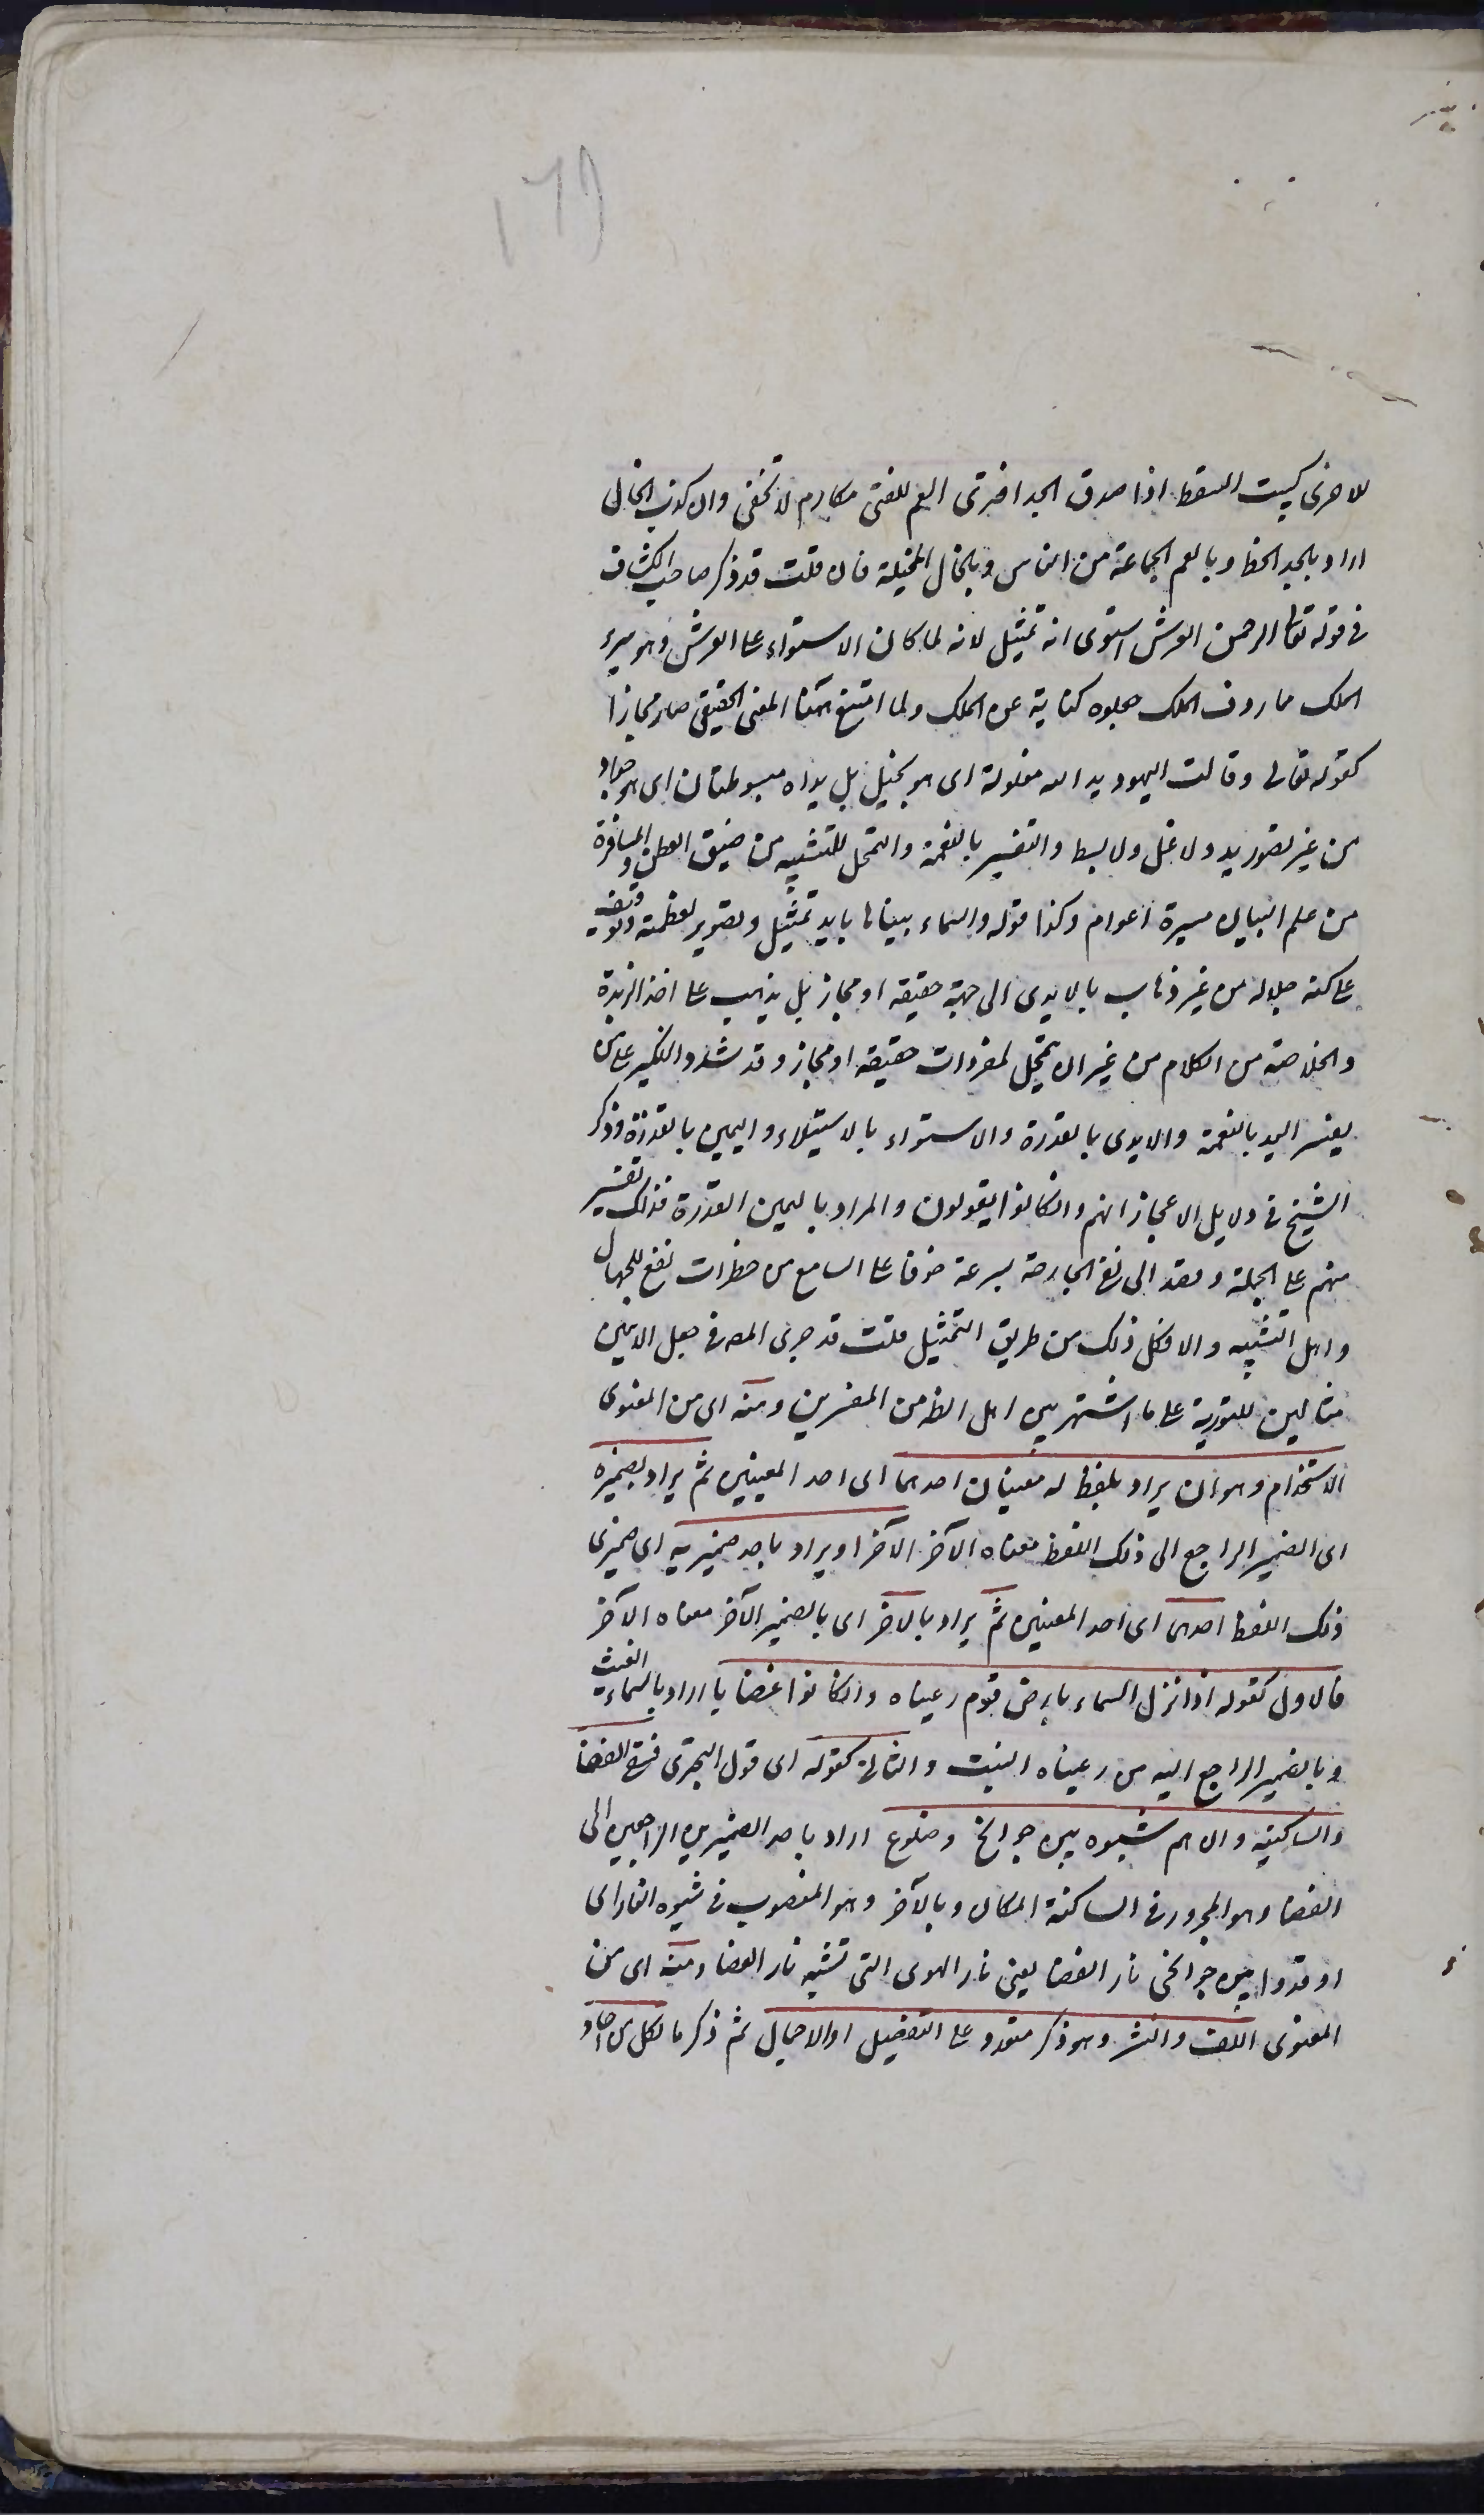 ١٦٩
للاخرى كبيت السقط اذا صدق الجد افترى العم للفتى مكارم لا تخفى وان كذب الخال
اراد بالجد الحظ وبالعم الجماعة من الناس وبالخال المخيلة فان قلت قد ذكر صاحب الكشاف
فى قوله تعا الرحمن على العرش استوى انه تمثيل لانه لما كان الاستواء على العرش وهو سرير
الملك مما يردف الملك جعلوه كناية عن الملك ولما امتنع ههنا المعنى الحقيقى صار مجازا
كقوله تعالى وقالت اليهود يد الله مغلولة اى هو بخيل بل يداه مبسوطتان اى هو جواد
من غير تصور يد ولا غل ولا بسط والتفسير بالنعمة والتمحل للتثنيه من ضيق العطن والمسافرة
من علم البيان مسيرة اعوام وكذا قوله والسماء بنيناها بايد تمثيل وتصوير لعظمته وتوقيف
على كنه جلاله من غير ذهاب بالايدى الى جهة حقيقه او مجاز بل يذهب على اخذ الزبدة
والخلاصة من الكلام من غير ان يتمحل لمفردات حقيقه او مجاز وقد شدد النكير على من
يفسر اليد بالنعمة والايدى بالقدرة والاستواء بالاستيلاء واليمين بالقدرة وذكر
الشيخ فى دلايل الاعجاز انهم وان كانوا يقولون والمراد باليمين القدرة فذلك تفسير
منهم على الجملة وقصد الى نفى الجارحة بسرعة خوفا على السامع من خطرات تقع للجهال
واهل التشبيه والا فكل ذلك من طريق التمثيل قلت قد جرى المص فى جعل الايتين
مثالين للتورية على ما اشتهر بين اهل الظ من المفسرين ومنه اى من المعنوى
الاستخدام وهو ان يراد بلفظ له معنيان احدهما اى احد المعنيين ثم يراد بضميره
اى الضمير الراجع الى ذلك اللفظ معناه الآخر الآخر او يراد باحد ضميريه اى ضميرى
ذلك اللفظ احدهما اى احد المعنيين ثم يراد بالآخر اى بالضمير الآخر معناه الآخر
فالاول كقوله اذا نزل السماء بارض قوم رعيناه وان كانوا غضابا اراد بالسماء الغيث
وبالضمير الراجع اليه من رعيناه النبت والثانى كقوله اى قول البحترى فسقى الغضا
والساكنيه وان هم شبوه بين جوانح وضلوع اراد باحد الضميرين الراجعين الى
الغضا وهو المجرور فى الساكنة المكان وبالآخر وهو المنصوب فى شبوه النار اى
اوقدوا بين جوانحى نار الغضا يعنى نار الهوى التى تشبه نار الغضا ومنه اى من
المعنوى اللف والنشر وهو ذكر متعدد على التفصيل او الاجمال ثم ذكر ما لكل من آحاد